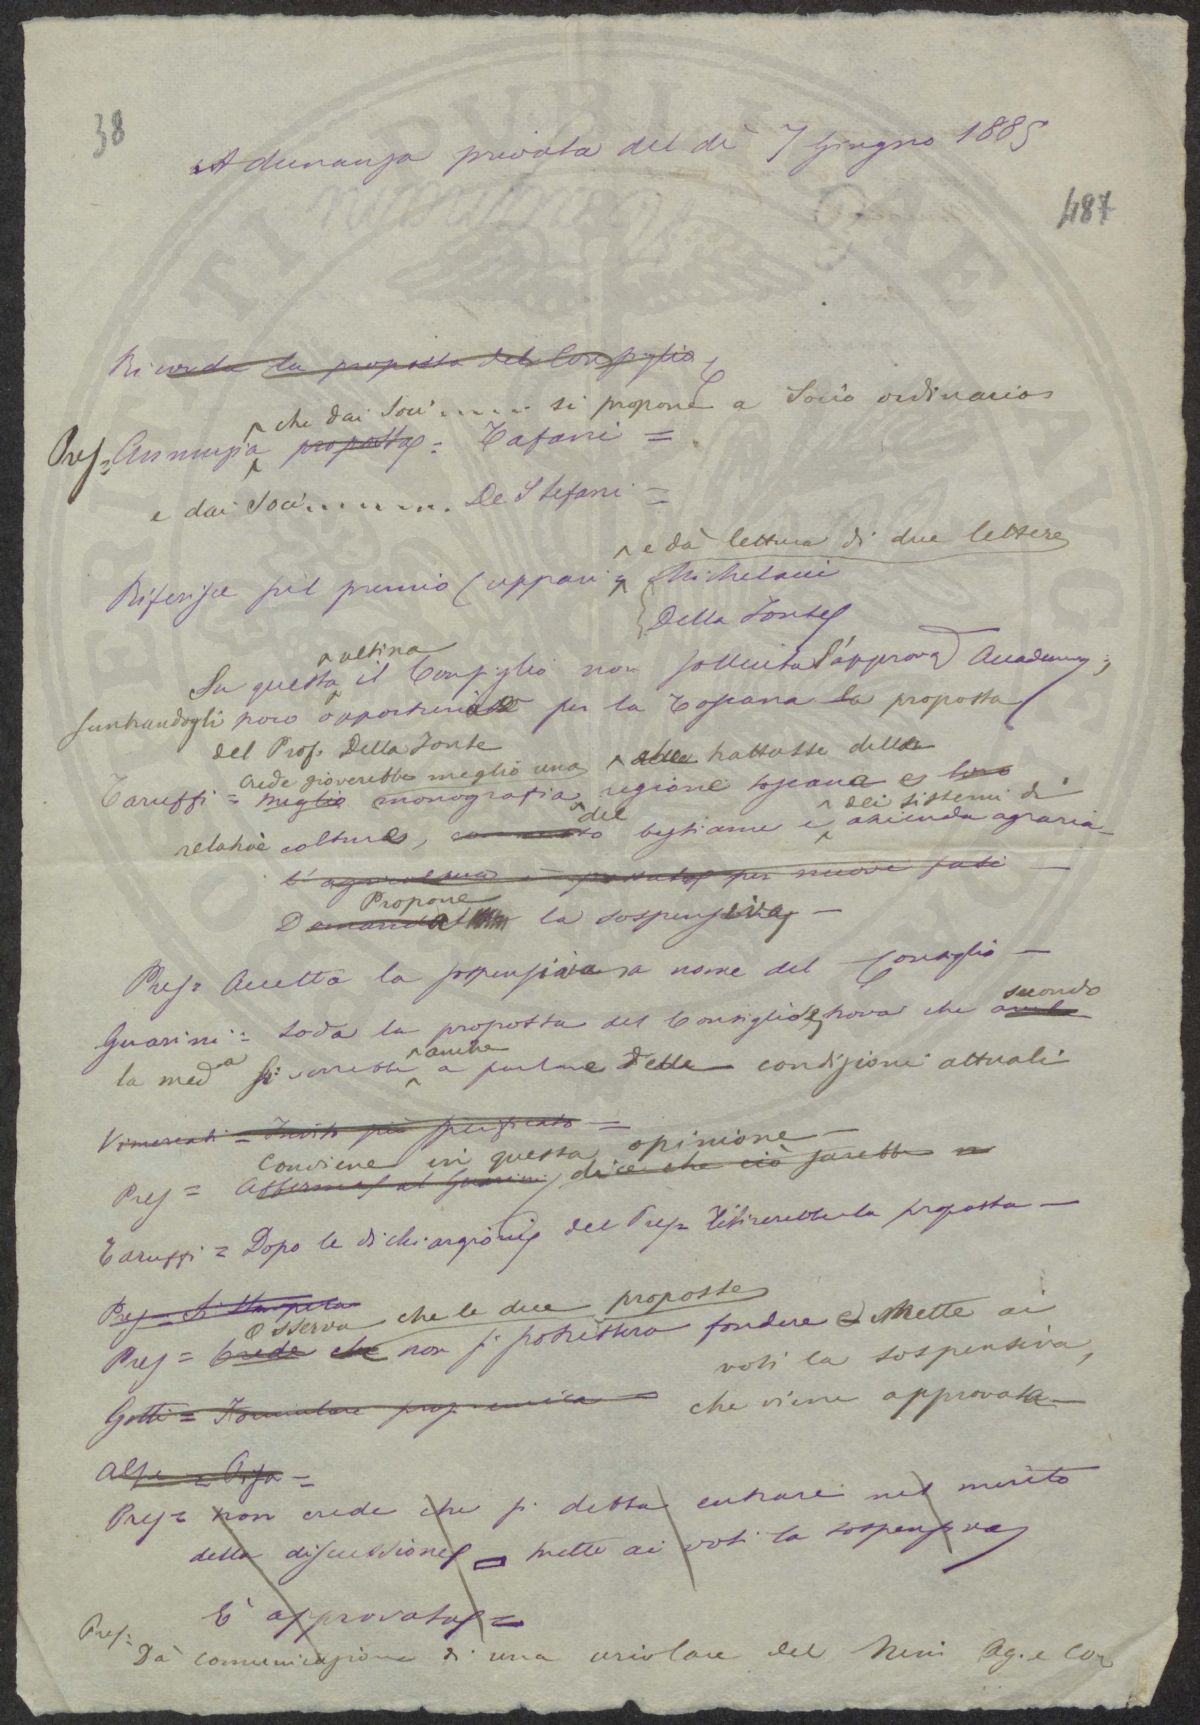 38
Adunanza privata del dì 7 Giugno 1885
487
Ricorda la proposta del Consiglio
che dai Soci ....... si propone a Socio ordinario
Pres = Annunzia proposta = Tafani =
e dai Soci ......... De Stefani =
e dà lettura di due lettere
Riferisce sul premio Cuppari = Michelacci
Della Fonte
ultima
Su questa il Consiglio non sollecita l'approva Academ,
sembrandogli poco opportuna per la Toscana la proposta
del Prof. Della Fonte
crede gioverebbe meglio una trattasse della
Taruffi = meglio monografia regione toscana e loro
del dei sistemi di
relative colture, bestiame e azienda agraria
Propone
Domanda la sospensiva —
Pres = Accetta la sospensiva a nome del Consiglio —
secondo
Guarini = Loda la proposta del Consiglio e trova che
anche
la med.a si verrebbe a parlare delle condizioni attuali
Vimercati = Invito più specificato =
Conviene in questa opinione —
Pres = Afferma al Guarini, dice che ciò sarebbe
Taruffi = Dopo le dichiarazioni del Pres = ritirerebbe la proposta —
Pres = Si
Osserva che le due proposte
Pres = Crede che non si potrebbero fondere e mette ai
voti la sospensiva,
Gotti = Formulare programma =
che viene approvata —
Alpe =
Pres = non crede che si debba entrare nel merito
della discussione = mette ai voti la sospensiva
È approvata =
Pres =
Dà comunicazione di una circolare del Min Ag. e Com